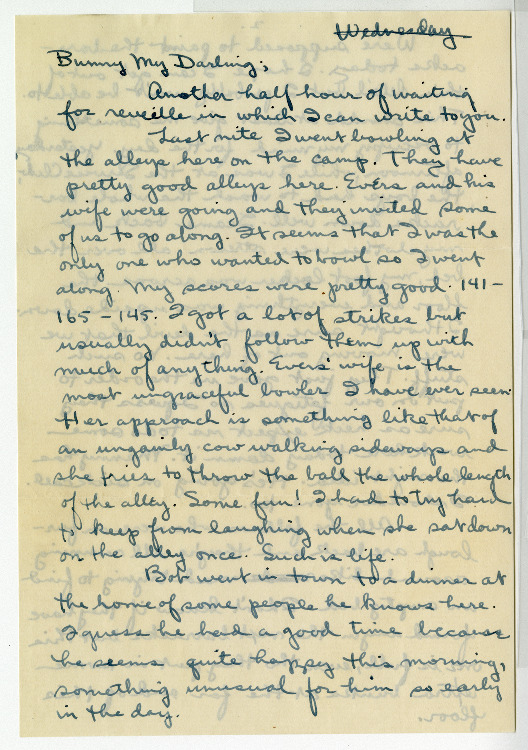 Wednesday
Bunny My Darling;
Another half hour of waiting
for reveille in which I can write to you.
Last nite I went bowling at
the alleys here on the camp. They have
pretty good alleys here. Evers and his
wife were going and they invited some
of us to go along. It seems that I was the
only one who wanted to bowl so I went
along. My scores were pretty good. 141-
165-145. I got a lot of strikes but
usually didn't follow them up with
much of anything. Evers' wife is the
most ungraceful bowler I have ever seen.
Her approach is something like that of
an ungainly cow walking sideways and
she tries to throw the ball the whole length
of the alley. Some fun! I had to try hard
to keep from laughing when she sat down
on the alley once. Such is life.
Bob went in town to a dinner at
the home of some people he knows here.
I guess he had a good time because
he seems quite happy this morning,
something unusual for him so early
in the day.